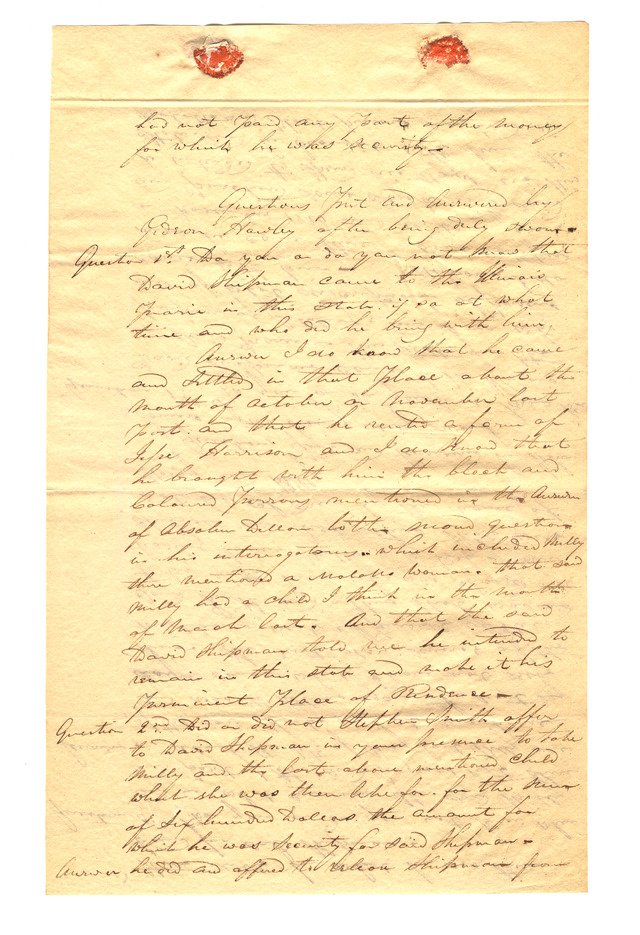 had not Paid any Part of the money
for which he was security
Questions Put and answered by
Gideon Hawley after being duly sworn
Question 1st. Do you or do you not know that
David Shipman came to the Illinois
Prarie in this State. if so at what
time and who did he bring with him,
Answer I do know that he came
and Settled in that Place about the
month of October or November last
Past. and that he rented a farm of
Jesse Harrison and I do know that
he brought with him the black and
Coloured Persons mentioned in the Answer
of Absalem Dillon to the second question
in his interrogatories. which included Milly
there mentioned a Molatto woman. that said
Milly had a child I think in the month
of March last. And that the said
David Shipman told me he intended to
remain in this state and make it his
Perminent Place of Residence
Question 2nd. Did or did not Stephen Smith offer
to David Shipman in your presence to take
Milly and the last above mentioned child
what she was then like for. for the sum
of Six hundred Dollars. the amount for
which he was security for said Shipman
Answer he did and offered to release Shipman from